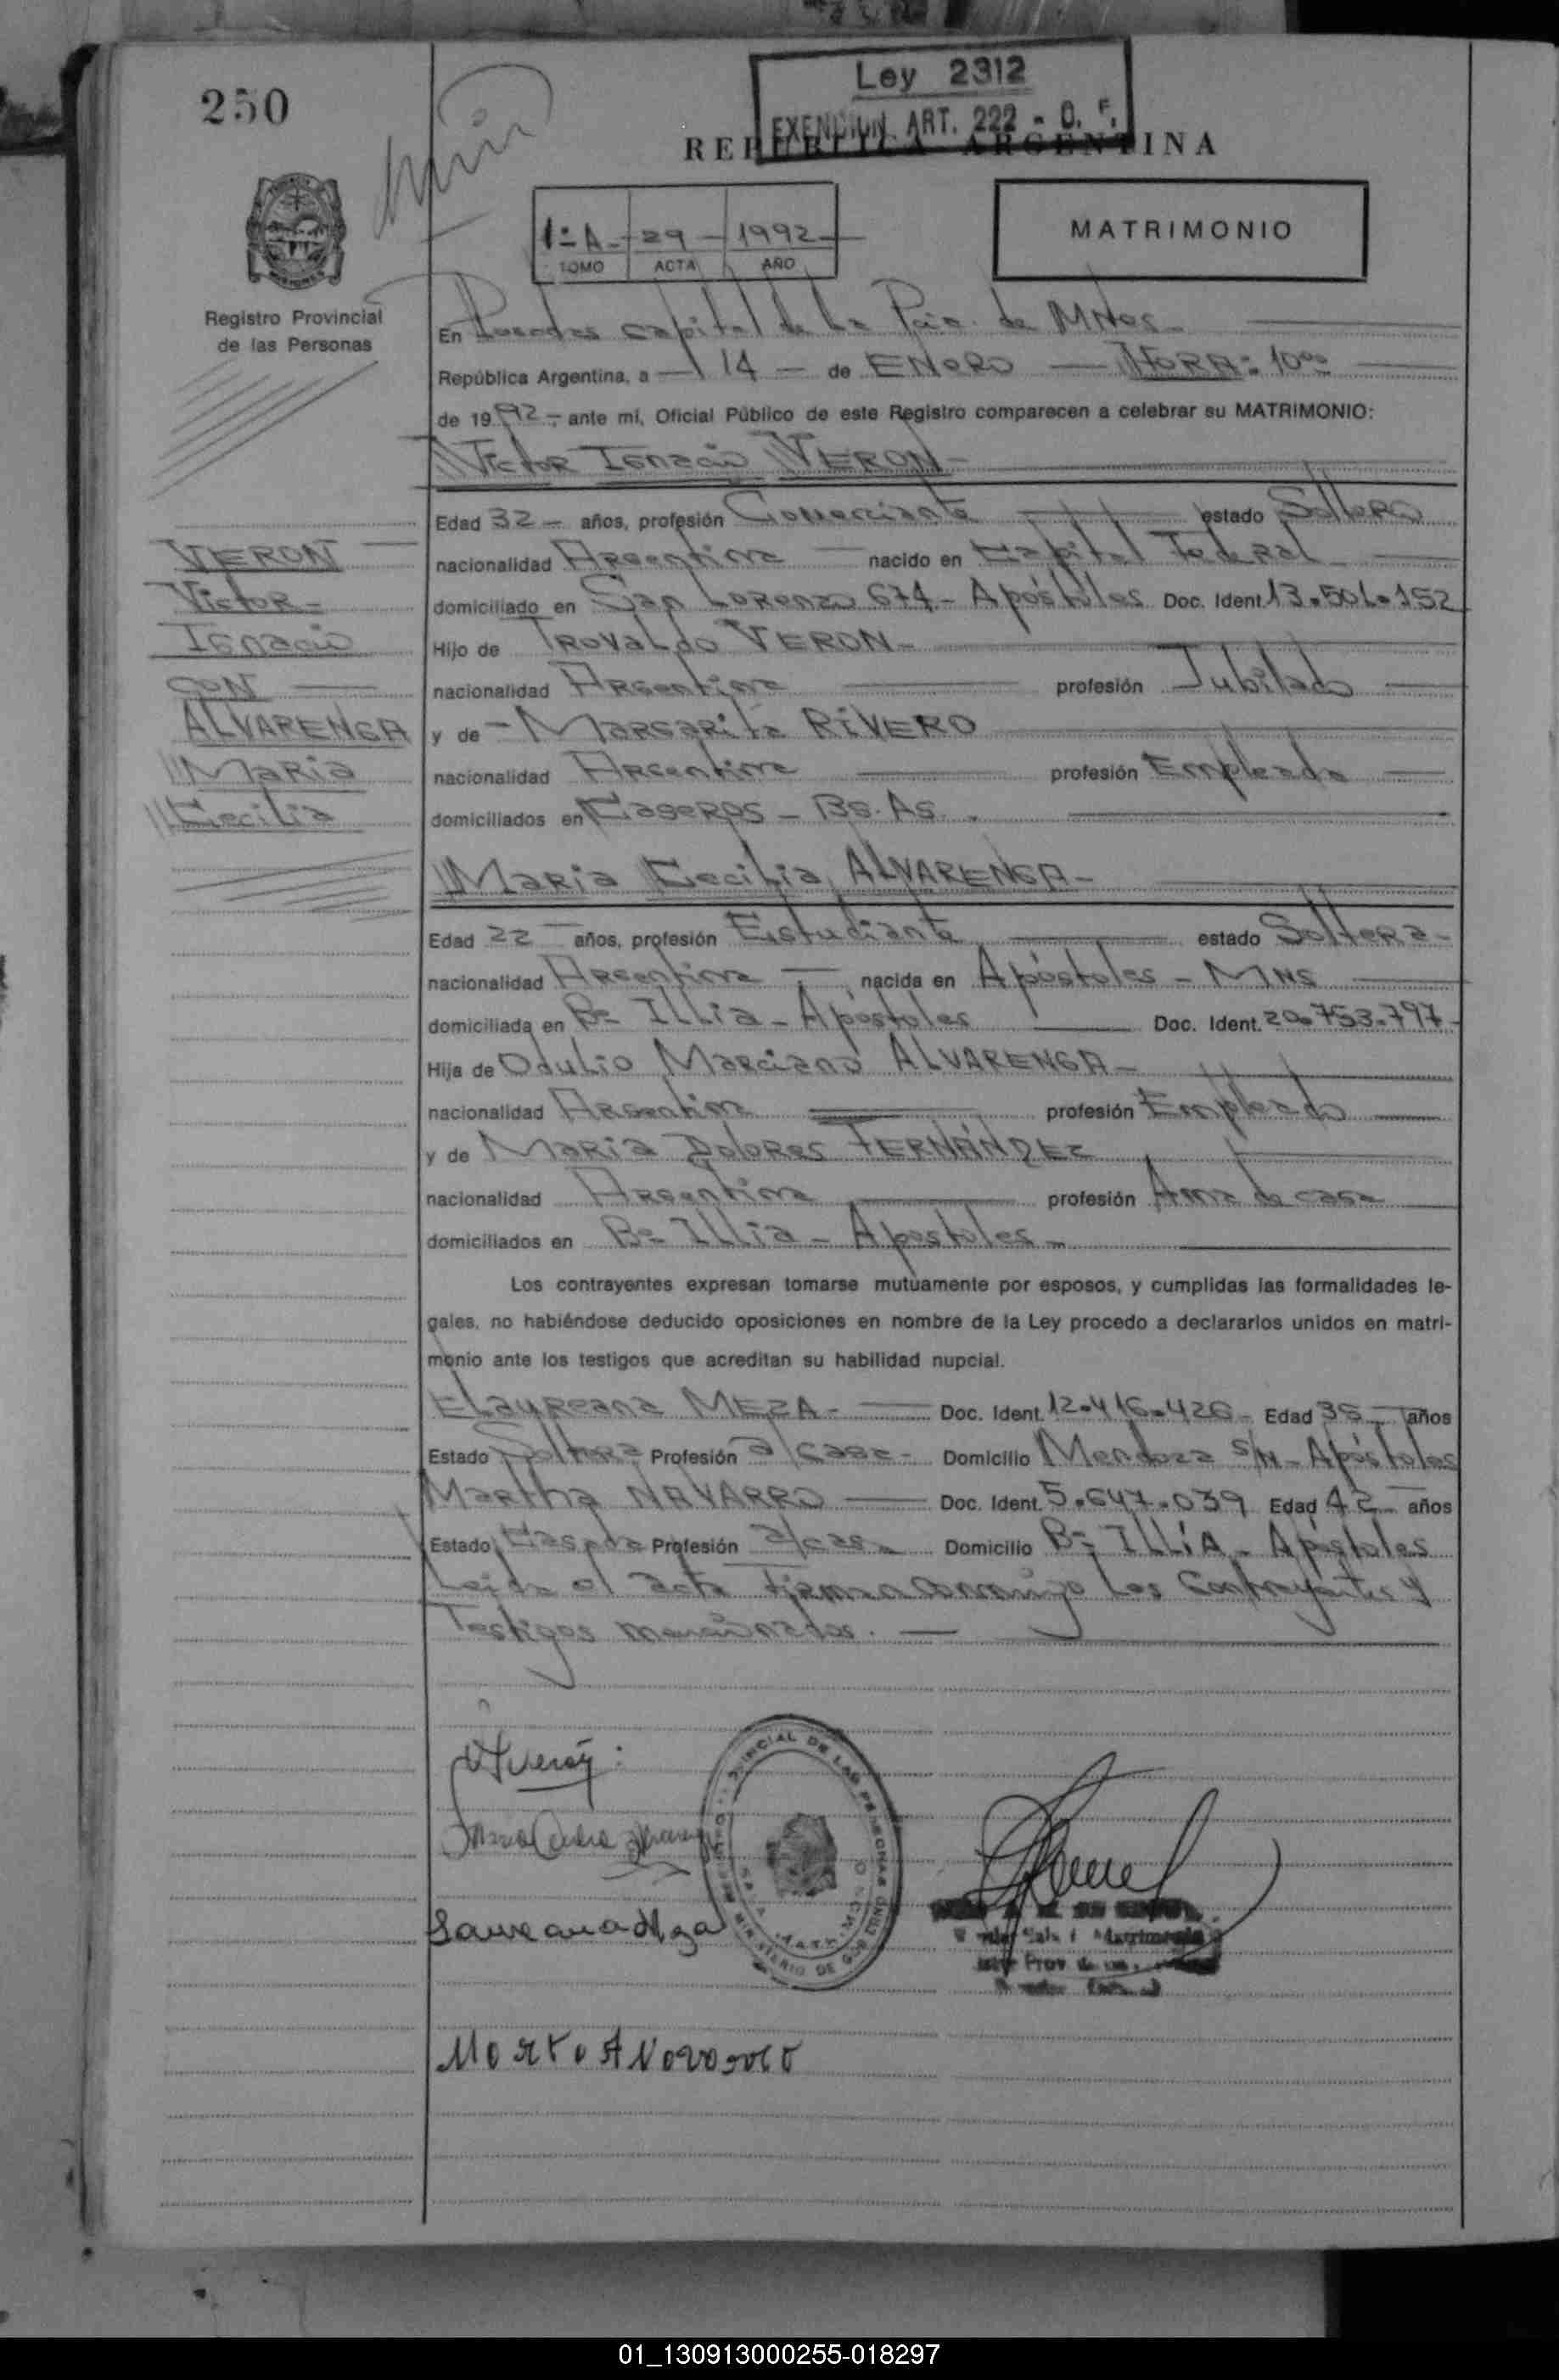 250
Ley 2312
EXENCION ART. 222 - O. F.
REPUBLICA ARGENTINA
1º A - 29 - 1992
TOMO ACTA AÑO
MATRIMONIO
Registro Provincial
de las Personas
En Posadas capital de la Pcia. de Mnes.
República Argentina, a 14 - de ENERO HORA: 10⁰⁰
de 1992 - ante mi, Oficial Público de este Registro comparecen a celebrar su MATRIMONIO:
Victor Ignacio VERON -
Edad 32 - años, profesión Comerciante estado Soltero
nacionalidad Argentina nacido en Capital Federal
domiciliado en San Lorenzo 674 - Apóstoles Doc. Ident. 13.501.152
Hijo de TROVALdo VERON -
nacionalidad Argentina profesión Jubilado
y de - Margarita RIVERO
nacionalidad Argentina profesión Empleada
domiciliados en Caseros - Bs. As.
VERON
Victor -
Ignacio
CON
ALVARENGA
Maria
Cecilia
Maria Cecilia ALVARENGA -
Edad 22 años, profesión Estudiante estado Soltera -
nacionalidad Argentina nacida en Apóstoles - MNS
domiciliada en Bº Illia - Apóstoles Doc. Ident. 20.753.797 -
Hija de Odulio Marciano ALVARENGA -
nacionalidad Argentina profesión Empleado
y de Maria Dolores FERNÁNDEZ
nacionalidad Argentina profesión Ama de casa
domiciliados en Bº Illia - Apostoles -
Los contrayentes expresan tomarse mutuamente por esposos, y cumplidas las formalidades le-
gales, no habiéndose deducido oposiciones en nombre de la Ley procedo a declararlos unidos en matri-
monio ante los testigos que acreditan su habilidad nupcial.
ELaureana MEZA - Doc. Ident. 12.416.426 - Edad 35 años
Estado Soltera Profesión a/casa - Domicilio Mendoza S/N - Apóstoles
Martha NAVARRO Doc. Ident. 5.647.039 Edad 42 años
Estado Casada Profesión a/casa Domicilio Bº ILLIA - Apóstoles
Leida el acta firman conmigo los Contrayentes y
Testigos mencionados.
Maria Cecilia
PROVINCIAL DE LAS PERSONAS
MINISTERIO DE GOBIERNO
01_130913000255-018297